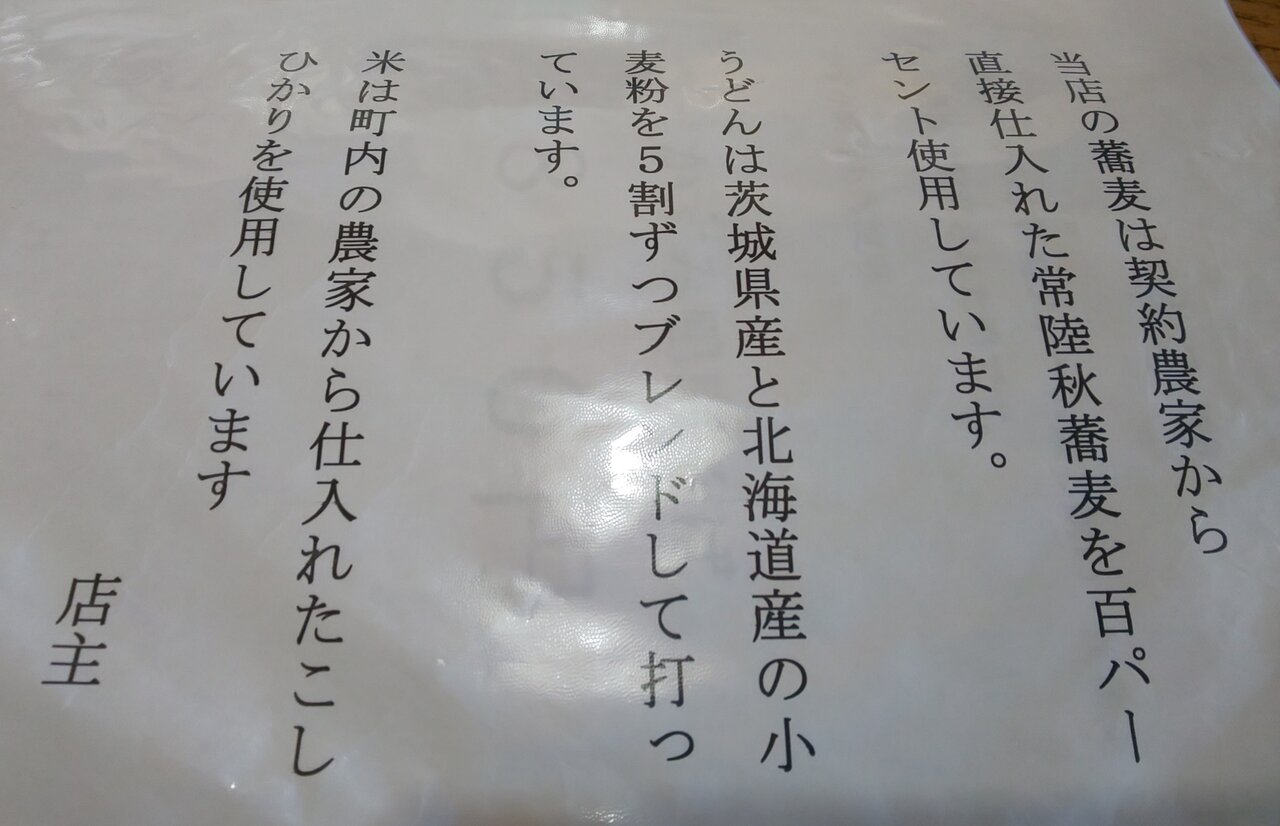 当店の蕎麦は契約農家から
直接仕入れた常陸秋蕎麦を百パー
セント使用しています。
うどんは茨城県産と北海道産の小
麦粉を5割ずつブレンドして打っ
ています。
米は町内の農家から仕入れたこし
ひかりを使用しています
店主